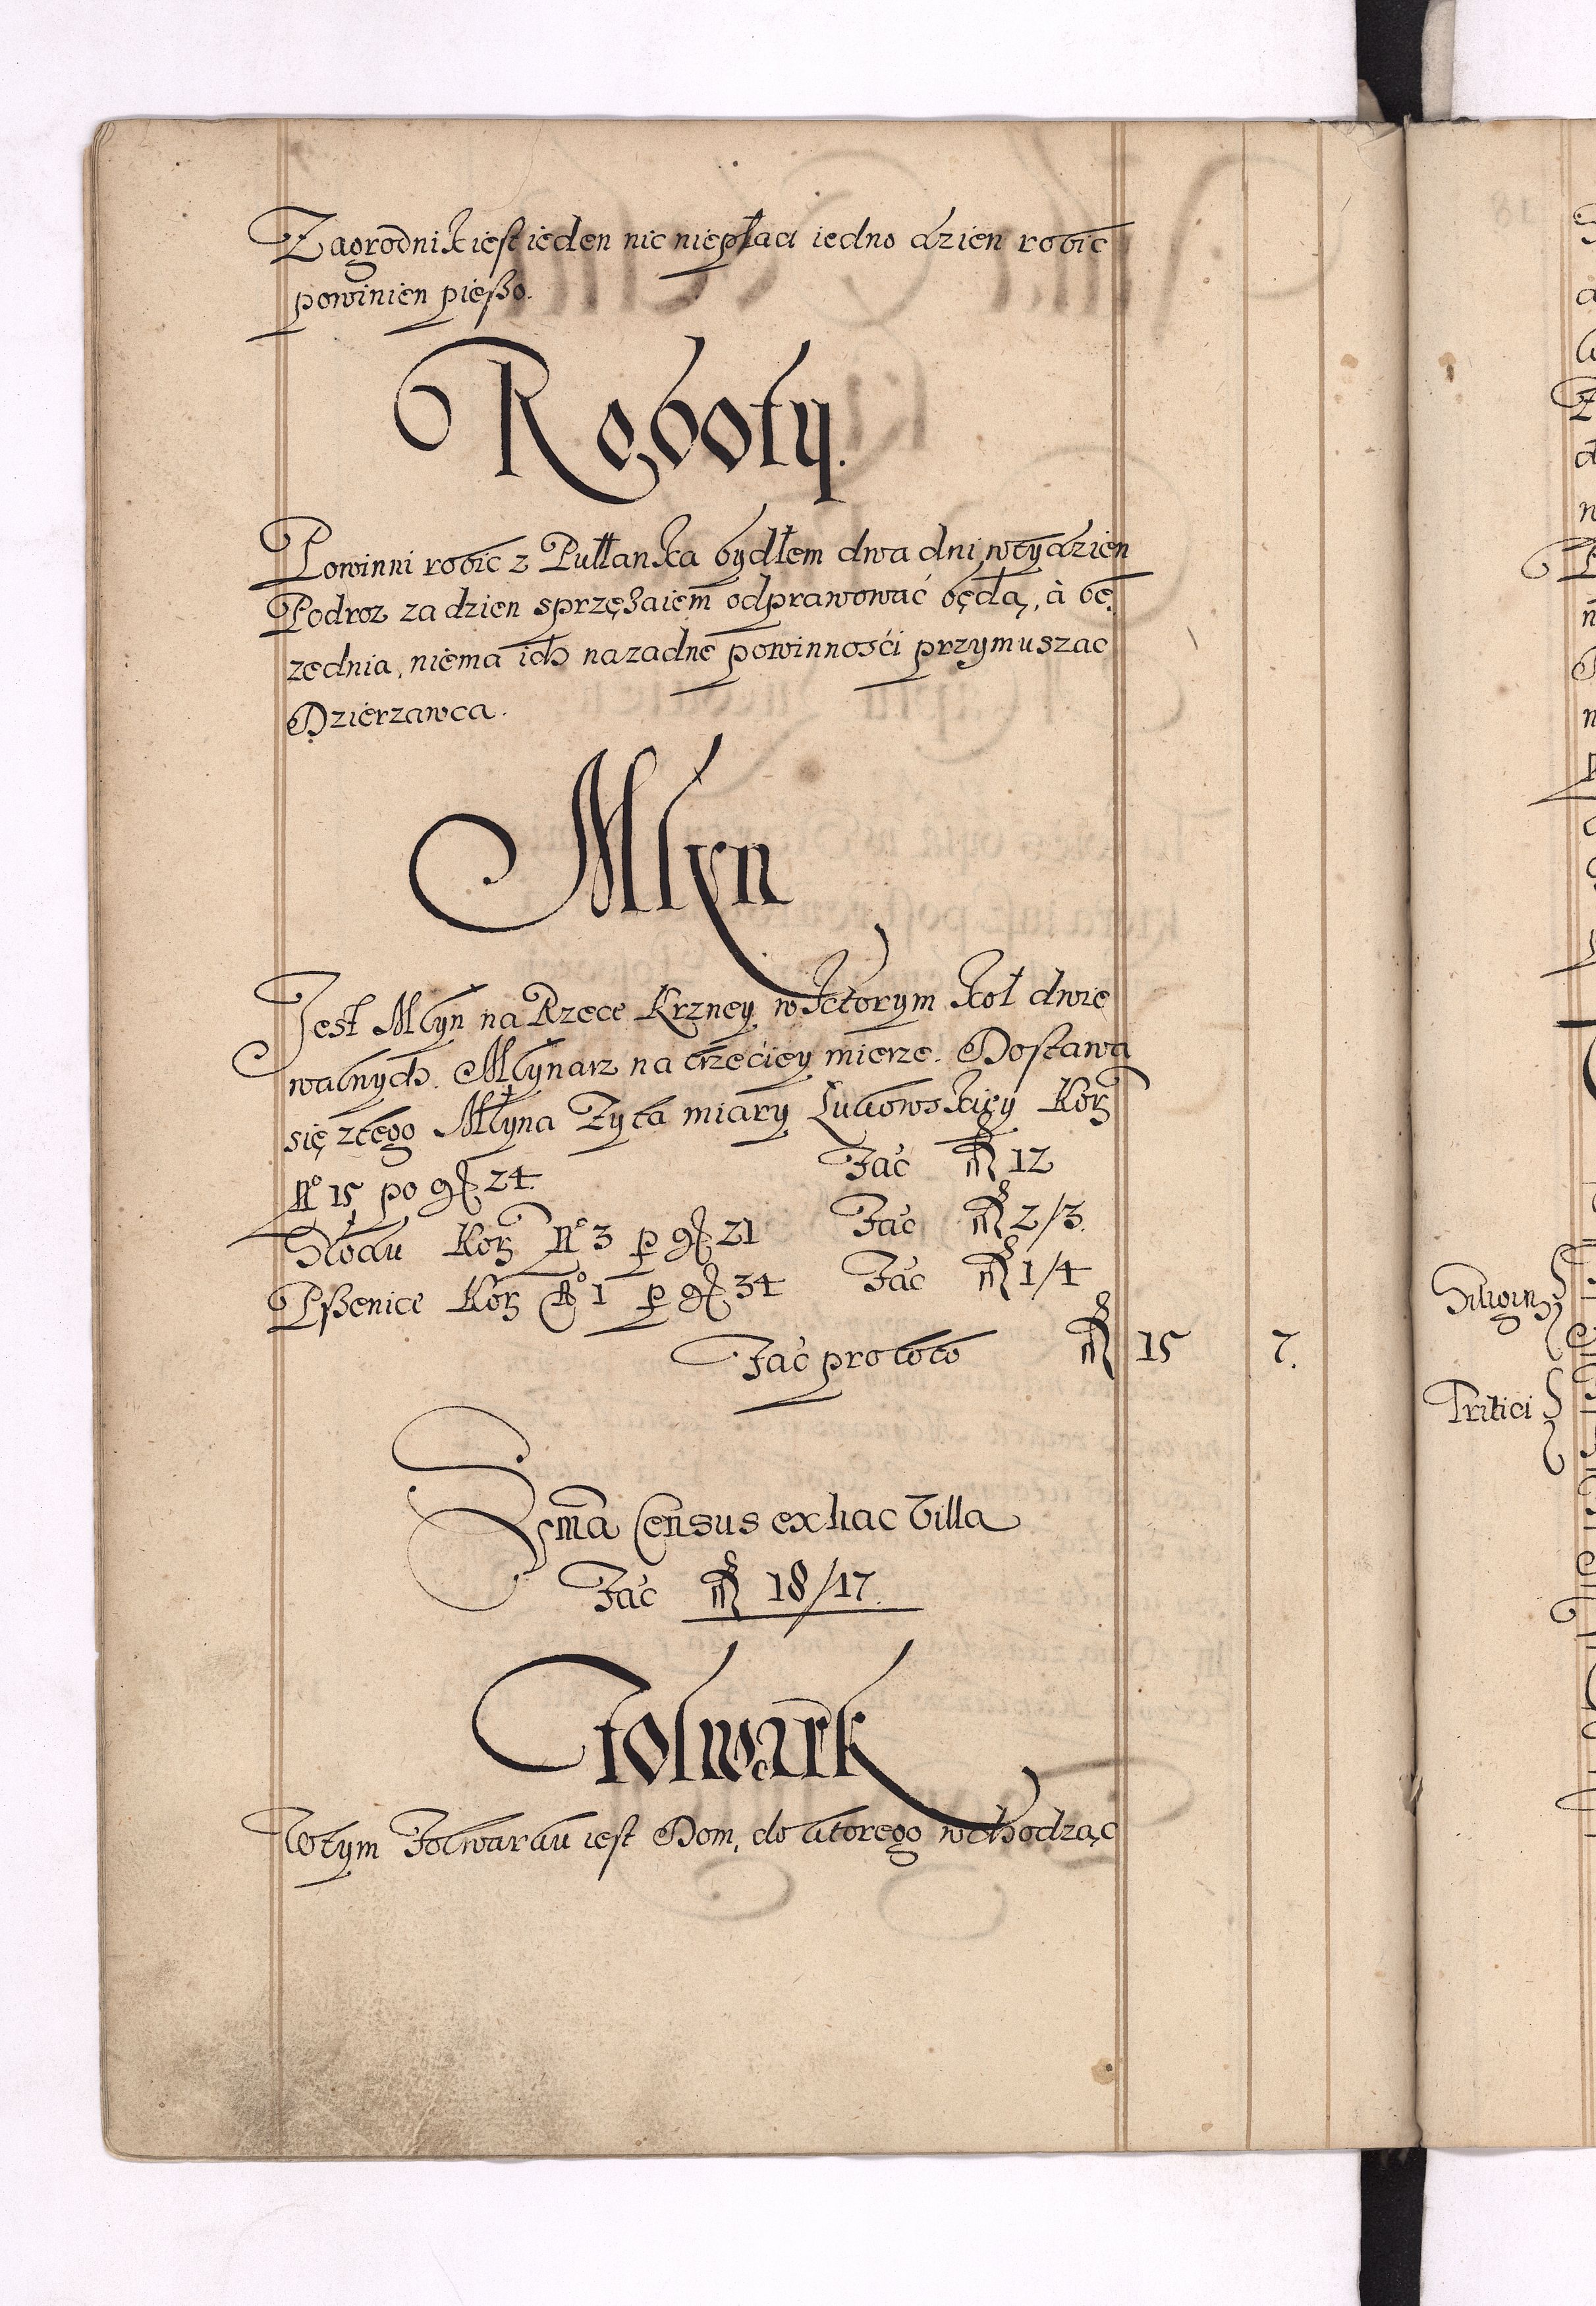 Zagrodnik iest ieden nic niepłaci iedno dzien robic
powinien pießo.
Roboty.
Powinni robic z Pułłanka bydłem dwa dni wtydzien
Podroz za dzien sprzęzaiem odprawować będą, à bę
zednia, niema ich nazadne powinnośći przymuszac
Dzierzawca.
Młyn
Jest Młyn na Rzece Krzney wktorym koł dwie
walnych. Młynarz na trzećiey mierze. Dostawa
się ztego Młyna Zyta miary Lukowskiey Korz
No 15 po gr 24. Fać 12
Słodu Korz No 3 p gr 21 Fać 2/3.
Pßenice Korz No 1 p gr 34 Fać 1/4
Fać pro toto 15 7.
Sma Census ex hac Villa
Fać 18/17.
Folwark
Wtym Folwarku iest Dom, do ktorego wchodząc
Siligin
Tritici